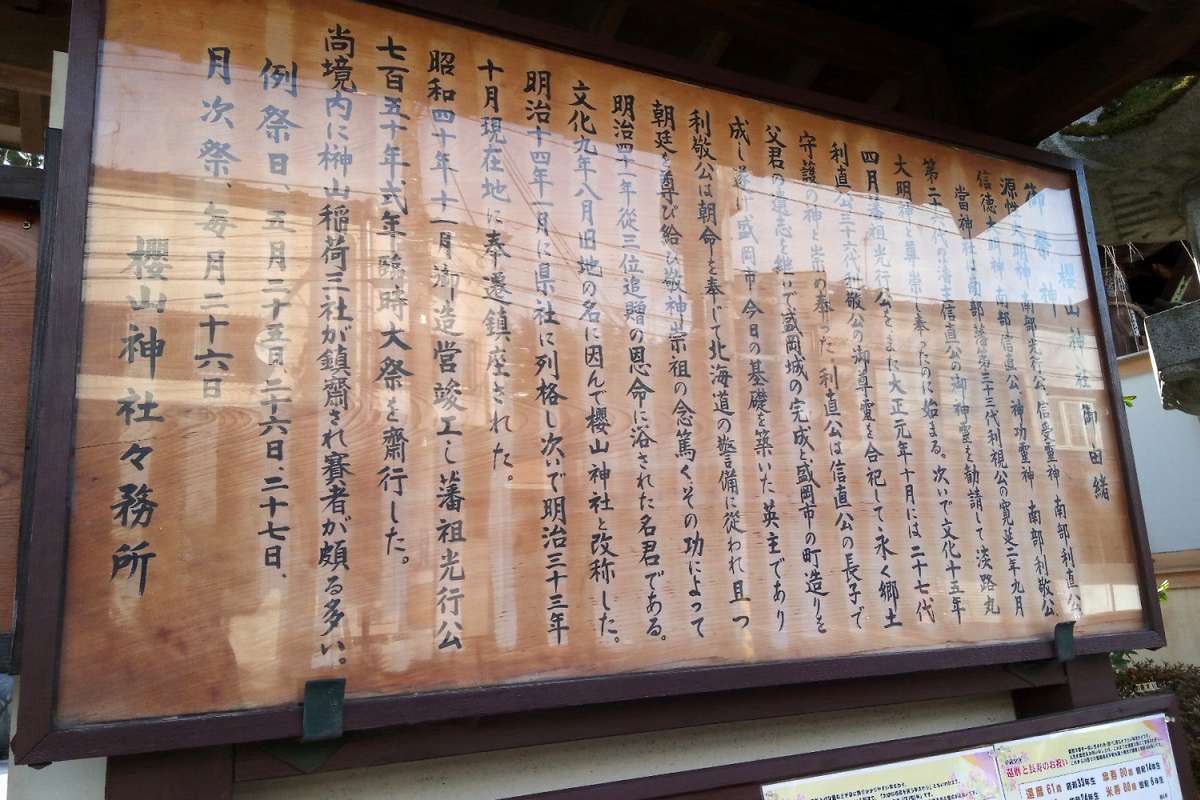 櫻山神社 御由緒
御祭神
源性大明神 南部光行公 信受靈神 南部利直公
信徳大明神 南部信直公 神功靈神 南部利敬公
當神社は南部藩第三十三代利視公の寛延二年九月
第二十六代の藩主信直公の御神霊を勧請して淡路丸
大明神と尊崇し奉ったのに始まる。次いで文化十五年
四月藩祖光行公をまた大正元年十月には二十七代
利直公三十六代利敬公の御尊霊を合祀して永く郷土
守護の神と崇め奉った 利直公は信直公の長子で
父君の遺志を継いで盛岡城の完成と盛岡市の町造りを
成し遂げ盛岡市今日の基礎を築いた英主であり
利敬公は朝命を奉じて北海道の警備に従われ且つ
朝廷を尊び給ひ敬神崇祖の念篤くその功によって
明治四十一年従三位追贈の恩命に浴された名君である。
文化九年八月旧地の名に因んで櫻山神社と改称した。
明治十四年一月に県社に列格し次いで明治三十三年
十月現在地に奉遷鎮座された。
昭和四十年十一月御造営竣工し藩祖光行公
七百五十年式年臨時大祭を齋行した。
尚境内に榊山稲荷三社が鎮齋され賽者が頗る多い。
例祭日、五月二十五日、二十六日、二十七日、
月次祭、毎月二十六日
櫻山神社々務所
還暦と長寿のお祝い
還暦 61歳 昭和33年生
傘寿 80歳 昭和14年生
米寿 88歳 昭和6年生